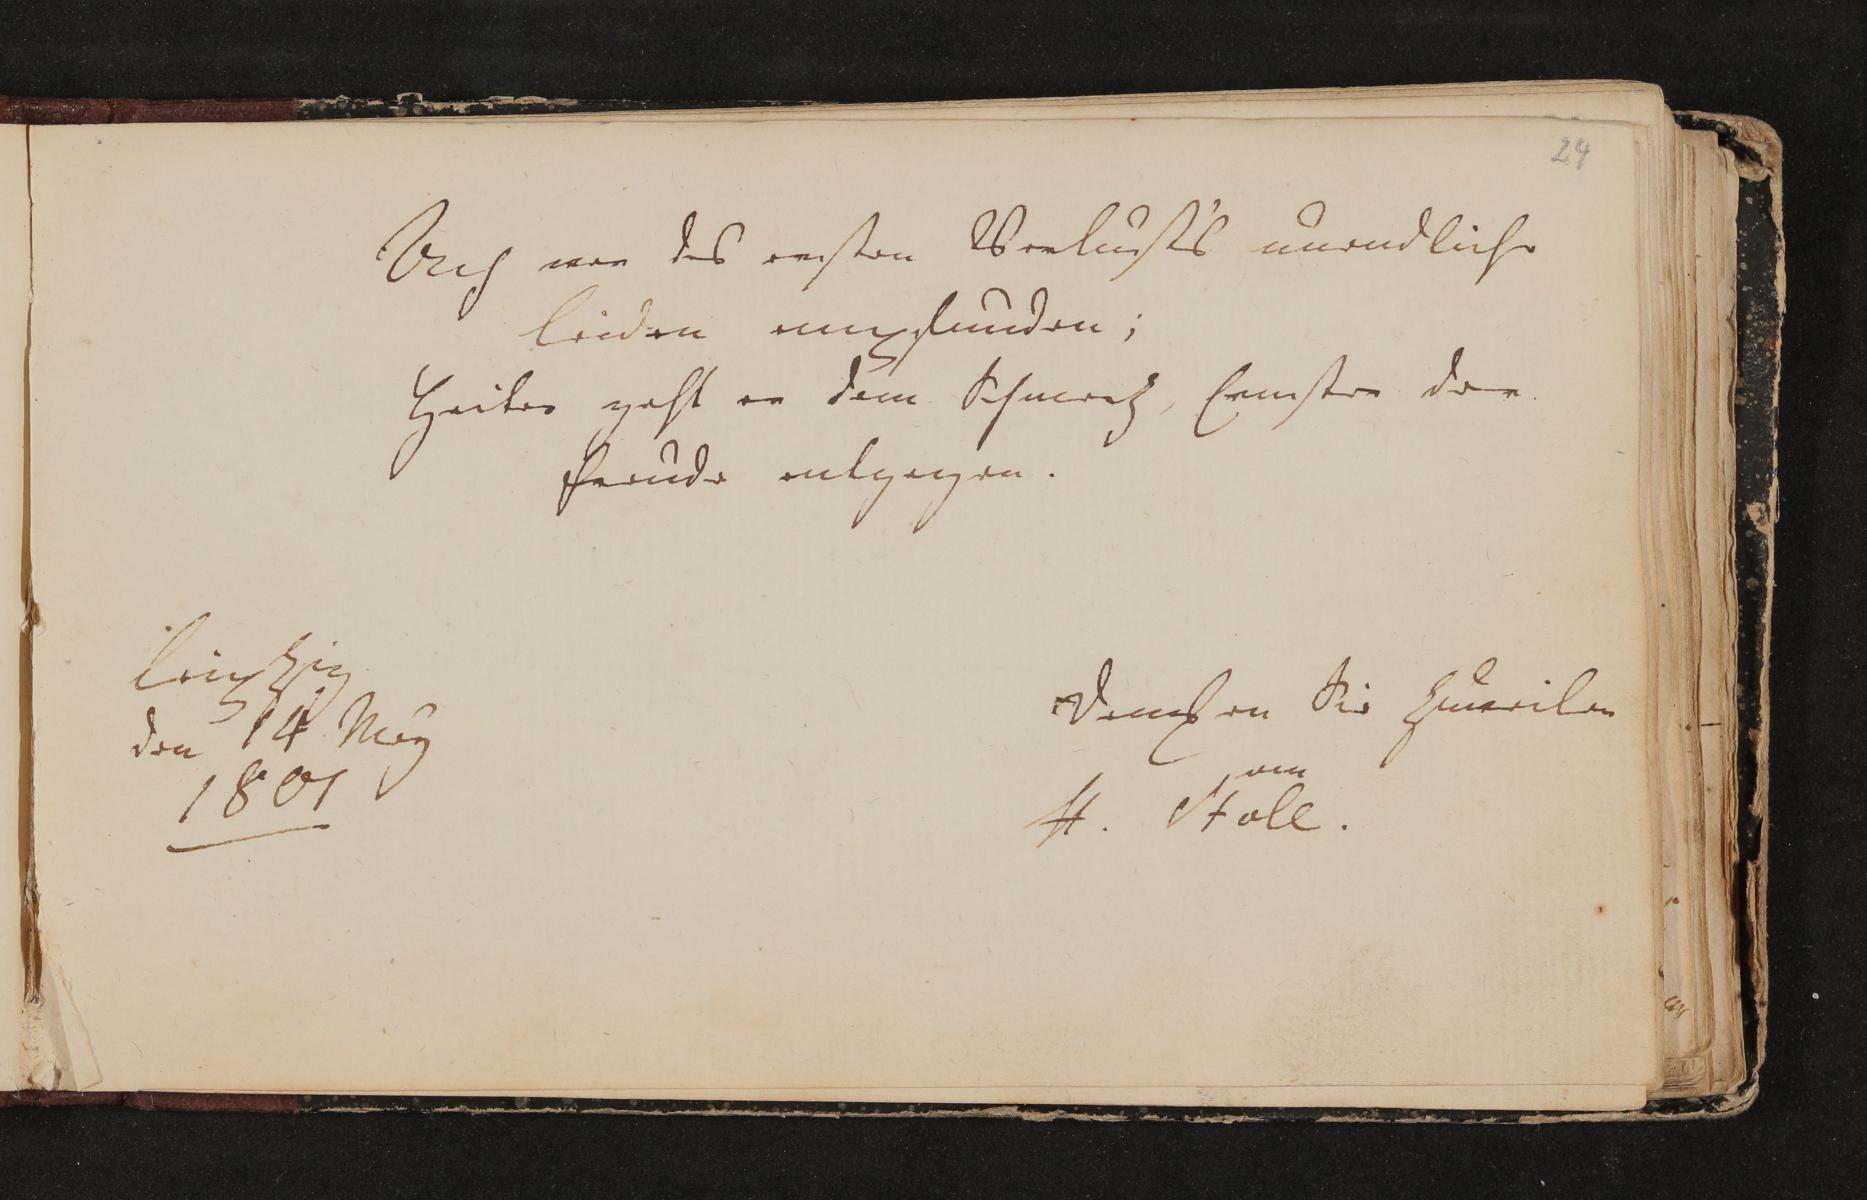 24
Ach wer des ersten Verlust's unendliche
Leiden empfunden;
Heiter geht er dem Schmerz, Ernster der
Freude entgegen.
Leipzig
den 14 May
1801
Denken Sie zuweilen
an
H. Stoll.